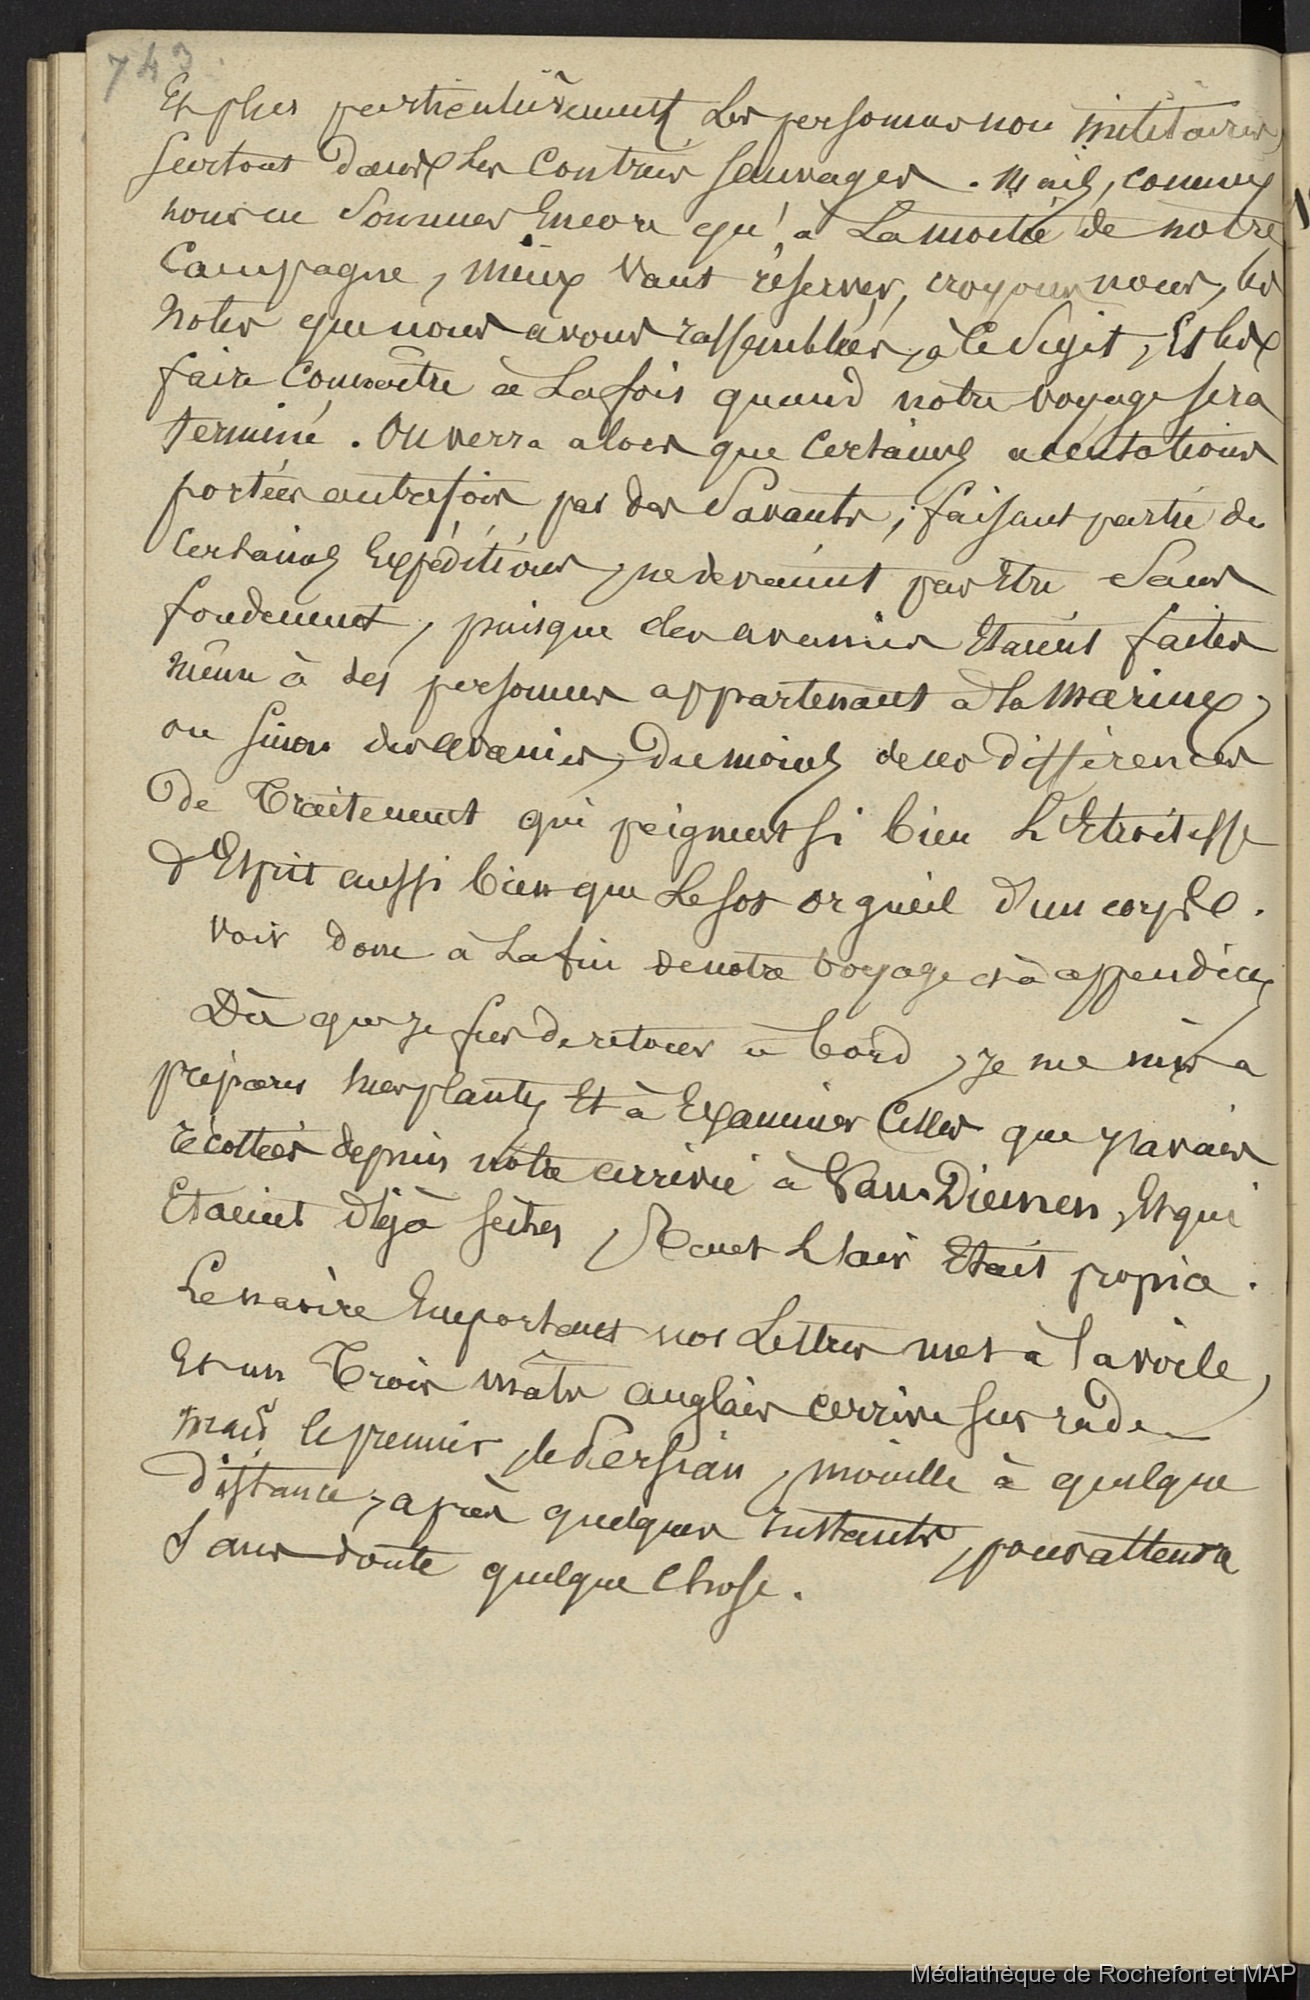 743
Et plus particulièrement Les personnes non militaires,
surtout dans Les Contrées sauvages. Mais, comme
nous ne sommes Encore qu'à La moitié de notre
Campagne, mieux vaut réserver, croyons nous, les
notes que nous avons rassemblées, à ce sujet, Et les
faire Connoître à La fois quand notre voyage sera
terminé. On verra alors que Certaines accusations
portées autrefois par des Savants, faisant partie de
Certaines Expéditions, ne devraient pas Etre Sans
fondement, puisque des avanies Etaient faites
même à des personnes appartenant à la Marine,
ou sinon des avanies, Du moins de ces différences
de Traitement qui peignent si bien L'Etroitesse
d'Esprit aussi bien que Le sot orgueil d'un corps.
voir donc à La fin de notre voyage et à appendice
Dès que je fus de retour à bord, je me mis a
préparer mes plantes Et à Examiner Celles que j'avais
récoltées depuis notre arrivée à Van-Diemen, Et qui
Etaient déjà sèches, Quoi L'air Etait propice.
Le navire Emportant nos Lettres met à la voile,
Et un Trois mâts anglais arrive sur rade
mais le premier, le Persian, mouille à quelque
distance, après quelques instants, pour attendre
sans doute quelque Chose.
Médiathèque de Rochefort et MAP